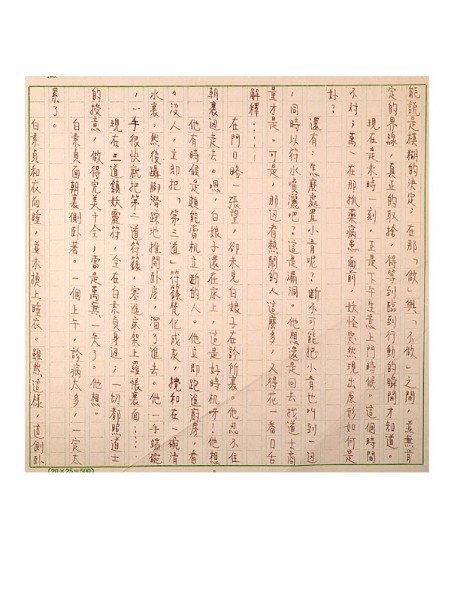 能說是模糊的決定；在那「做」與「不做」之間，並無肯
定的界線，真正的取捨，得等到臨到行動的瞬間才知道。
現在是未時一刻，正是下午生意上門時候。這個時間
不対；萬一在那抓藥病患面前，妖怪突然現出原形如何是
好？
還有：怎麼處置小青呢？斷不可能把小青也叫到一邊
，同時以符水噴灑吧？這是漏洞。他想還是回去找道士商
量才是。可是，那看熱鬧的人這麼多，又得花一番口舌
解釋……
在門口略一張望，卻未見白娘子在診所裏。他忍不住
朝裏走去。白娘子還在床上，這是好時机呀！他想
他有時候是頗能當机立斷的人。他立即跑進廚房，看
。沒人，立即把「第三道」符籙焚化成灰，攪和在一碗清
水裏，然後躡腳潛蹤地推開卧房，溜了進去。他一手端碗
，一手很快就把第二道符籙，塞進床架上羅帳裏面……
現在三道鎮妖靈符，全在白素貞身邊；一切都照道士
的授意，做得完美十全，當是萬無一失了。他想。
白素貞面朝裏側卧著。一個上午，診病太多，一定太
累了。
白素貞和衣而睡，並未換上睡衣。雖然這樣，這側卧
(20×25=500)